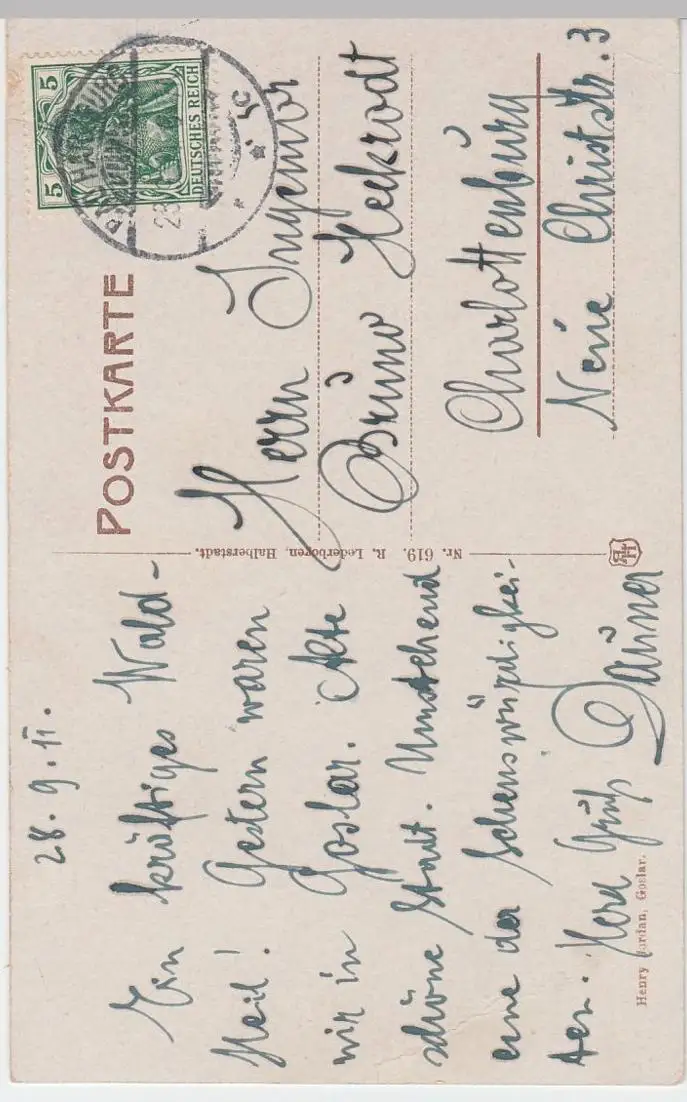 28. 9. 11.
Ein kräftiges Wald-
Heil! Gestern waren
wir in Goslar. Alte
schöne Stadt. Umstehend
eine der Sehenswürdigkei-
ten. Herz Gruß
Henry Jordan, Goslar.
Nr. 619. R. Lederbogen, Halberstadt.
POSTKARTE
5 5
DEUTSCHES REICH
Herrn
Bruno Heckrodt
Charlottenburg
Neue Christstr. 3